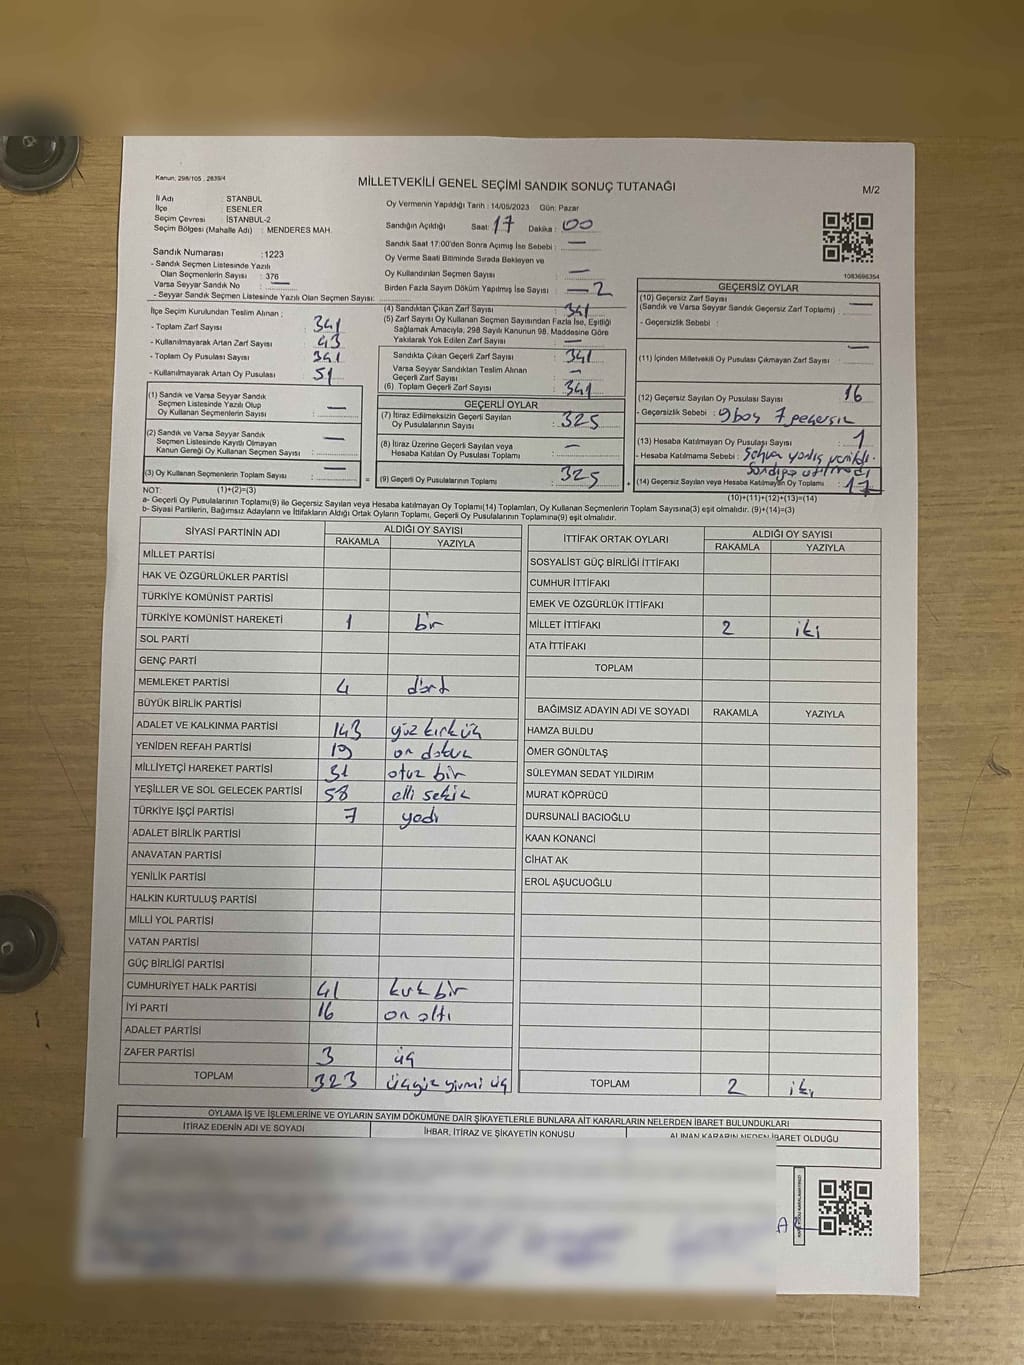 Kanun: 298/105 , 2839/4
MİLLETVEKİLİ GENEL SEÇİMİ SANDIK SONUÇ TUTANAĞI
M/2
İl Adı STANBUL
İlçe ESENLER
Seçim Çevresi İSTANBUL-2
Seçim Bölgesi (Mahalle Adı) : MENDERES MAH.
Oy Vermenin Yapıldığı Tarih : 14/05/2023 Gün: Pazar
Sandığın Açıldığı Saat: 17 Dakika: 00
Sandık Saat 17:00'den Sonra Açımış İse Sebebi : —
Oy Verme Saati Bitiminde Sırada Bekleyen ve
Oy Kullandırılan Seçmen Sayısı —
Birden Fazla Sayım Döküm Yapılmış İse Sayısı : — 2
1083696354
Sandık Numarası :1223
- Sandık Seçmen Listesinde Yazılı
Olan Seçmenlerin Sayısı : 376
Varsa Seyyar Sandık No : —
- Seyyar Sandık Seçmen Listesinde Yazılı Olan Seçmen Sayısı:
İlçe Seçim Kurulundan Teslim Alınan ;
- Toplam Zarf Sayısı : 341
- Kullanılmayarak Artan Zarf Sayısı : 43
- Toplam Oy Pusulası Sayısı : 341
- Kullanılmayarak Artan Oy Pusulası : 51
(1) Sandık ve Varsa Seyyar Sandık
Seçmen Listesinde Yazılı Olup
Oy Kullanan Seçmenlerin Sayısı : —
(2) Sandık ve Varsa Seyyar Sandık
Seçmen Listesinde Kayıtlı Olmayan
Kanun Gereği Oy Kullanan Seçmen Sayısı : —
(3) Oy Kullanan Seçmenlerin Toplam Sayısı : —
(4) Sandıktan Çıkan Zarf Sayısı : 341
(5) Zarf Sayısı Oy Kullanan Seçmen Sayısından Fazla İse, Eşitliği
Sağlamak Amacıyla, 298 Sayılı Kanunun 98. Maddesine Göre
Yakılarak Yok Edilen Zarf Sayısı : —
Sandıkta Çıkan Geçerli Zarf Sayısı : 341
Varsa Seyyar Sandıktan Teslim Alınan
Geçerli Zarf Sayısı : —
(6) Toplam Geçerli Zarf Sayısı : 341
GEÇERLİ OYLAR
(7) İtiraz Edilmeksizin Geçerli Sayılan
Oy Pusulalarının Sayısı : 325
(8) İtiraz Üzerine Geçerli Sayılan veya
Hesaba Katılan Oy Pusulası Toplamı : —
= (9) Geçerli Oy Pusulalarının Toplamı : 325
GEÇERSİZ OYLAR
(10) Geçersiz Zarf Sayısı
(Sandık ve Varsa Seyyar Sandık Geçersiz Zarf Toplamı) : —
- Geçersizlik Sebebi :
(11) İçinden Milletvekili Oy Pusulası Çıkmayan Zarf Sayısı : —
(12) Geçersiz Sayılan Oy Pusulası Sayısı : 16
- Geçersizlik Sebebi : 9 boş 7 geçersiz
(13) Hesaba Katılmayan Oy Pusulası Sayısı : 1
- Hesaba Katılmama Sebebi : Sehven yanlış verildi.
Sandığa atılmadı
(14) Geçersiz Sayılan veya Hesaba Katılmayan Oy Toplamı : 17
NOT: (1)+(2)=(3)
(10)+(11)+(12)+(13)=(14)
a- Geçerli Oy Pusulalarının Toplamı(9) ile Geçersiz Sayılan veya Hesaba katılmayan Oy Toplamı(14) Toplamları, Oy Kullanan Seçmenlerin Toplam Sayısına(3) eşit olmalıdır. (9)+(14)=(3)
b- Siyasi Partilerin, Bağımsız Adayların ve İttifakların Aldığı Ortak Oyların Toplamı, Geçerli Oy Pusulalarının Toplamına(9) eşit olmalıdır.
SİYASİ PARTİNİN ADI ALDIĞI OY SAYISI
RAKAMLA YAZIYLA
MİLLET PARTİSİ
HAK VE ÖZGÜRLÜKLER PARTİSİ
TÜRKİYE KOMÜNİST PARTİSİ
TÜRKİYE KOMÜNİST HAREKETİ 1 bir
SOL PARTİ
GENÇ PARTİ
MEMLEKET PARTİSİ 4 dört
BÜYÜK BİRLİK PARTİSİ
ADALET VE KALKINMA PARTİSİ 143 yüz kırk üç
YENİDEN REFAH PARTİSİ 19 on dokuz
MİLLİYETÇİ HAREKET PARTİSİ 31 otuz bir
YEŞİLLER VE SOL GELECEK PARTİSİ 58 elli sekiz
TÜRKİYE İŞÇİ PARTİSİ 7 yedi
ADALET BİRLİK PARTİSİ
ANAVATAN PARTİSİ
YENİLİK PARTİSİ
HALKIN KURTULUŞ PARTİSİ
MİLLİ YOL PARTİSİ
VATAN PARTİSİ
GÜÇ BİRLİĞİ PARTİSİ
CUMHURİYET HALK PARTİSİ 41 kırk bir
İYİ PARTİ 16 on altı
ADALET PARTİSİ
ZAFER PARTİSİ 3 üç
TOPLAM 323 üçyüz yirmi üç
İTTİFAK ORTAK OYLARI ALDIĞI OY SAYISI
RAKAMLA YAZIYLA
SOSYALİST GÜÇ BİRLİĞİ İTTİFAKI
CUMHUR İTTİFAKI
EMEK VE ÖZGÜRLÜK İTTİFAKI
MİLLET İTTİFAKI 2 iki
ATA İTTİFAKI
TOPLAM
BAĞIMSIZ ADAYIN ADI VE SOYADI RAKAMLA YAZIYLA
HAMZA BULDU
ÖMER GÖNÜLTAŞ
SÜLEYMAN SEDAT YILDIRIM
MURAT KÖPRÜCÜ
DURSUNALİ BACIOĞLU
KAAN KONANCİ
CİHAT AK
EROL AŞUCUOĞLU
TOPLAM 2 iki
OYLAMA İŞ VE İŞLEMLERİNE VE OYLARIN SAYIM DÖKÜMÜNE DAİR ŞİKAYETLERLE BUNLARA AİT KARARLARIN NELERDEN İBARET BULUNDUKLARI
İTİRAZ EDENİN ADI VE SOYADI İHBAR, İTİRAZ VE ŞİKAYETİN KONUSU ALINAN KARARIN NEDEN İBARET OLDUĞU